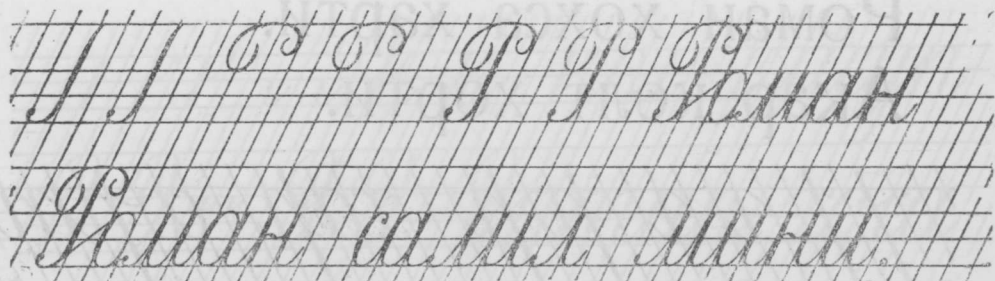 Р Р Роман
Роман самил мини.